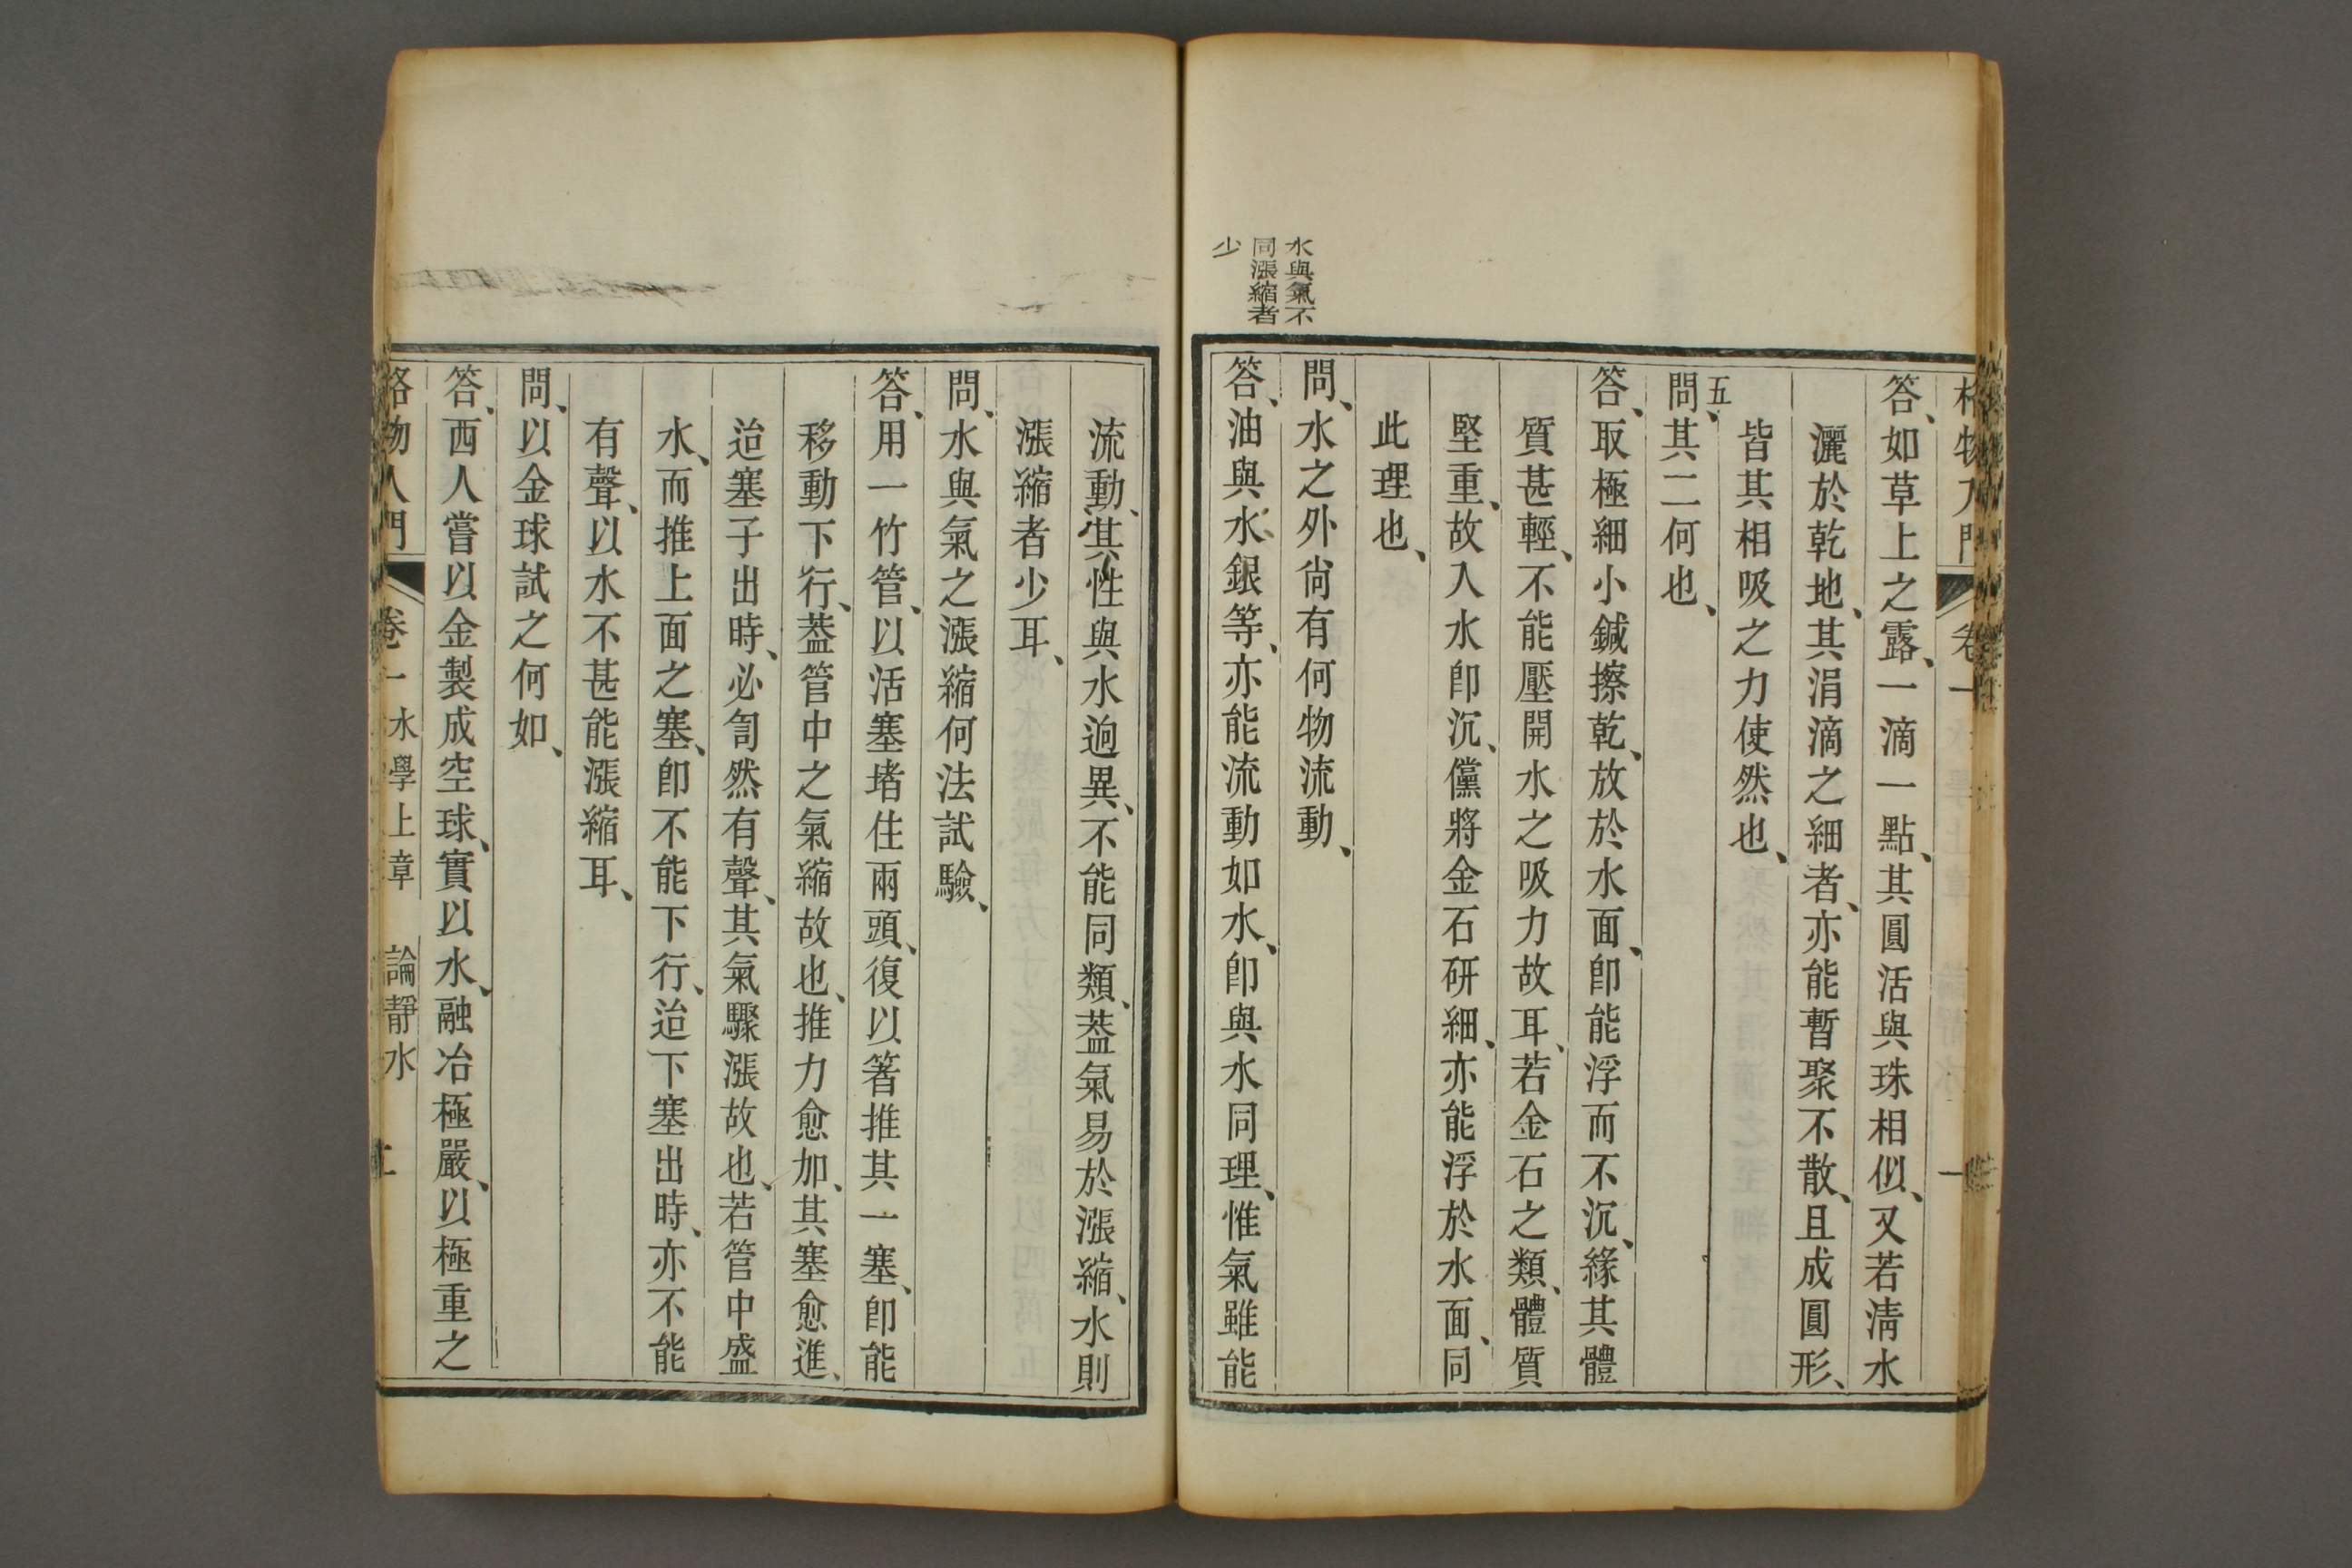 格物入門 卷一 一
答、如草上之露、一滴一點、其圓活與珠相似、又若淸水
灑於乾地、其涓滴之細者、亦能暫聚不散、且成圓形、
皆其相吸之力使然也、
五
問、其二何也、
答、取極細小鍼擦乾、放於水面、卽能浮而不沉、緣其體
質甚輕、不能壓開水之吸力故耳、若金石之類、體質
堅重、故入水卽沉、儻將金石研細、亦能浮於水面、同
此理也、
水與氣不
同漲縮者
少
問、水之外尙有何物流動、
答、油與水銀等、亦能流動如水、卽與水同理、惟氣雖能
流動、其性與水迥異、不能同類、葢氣易於漲縮、水則
漲縮者少耳、
問、水與氣之漲縮何法試驗、
答、用一竹管、以活塞堵住兩頭、復以箸推其一塞、卽能
移動下行、葢管中之氣縮故也、推力愈加、其塞愈進、
迨塞子出時、必訇然有聲、其氣驟漲故也、若管中盛
水、而推上面之塞、卽不能下行、迨下塞出時、亦不能
有聲、以水不甚能漲縮耳、
問、以金球試之何如、
答、西人嘗以金製成空球、實以水、融冶極嚴、以極重之
格物入門 卷一 水學上章 論靜水 二